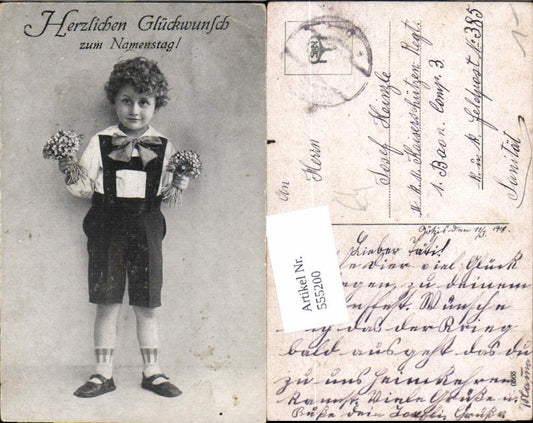 Herzlichen Glückwunsch
zum Namenstag!
An
Herrn
Josef Heinzle
K. K. Kaiserschützen Regt.
1. Baon. Comp. 3
K. u. K. Feldpost N. 385
Sanität
Artikel Nr.
555200
Götzis den
Lieber Tati!
dier viel Glück
zu deinem
Wünsche
das der Krieg
bald ausgeht das du
zu uns heimkehren
kannst Viele Grüße u.
Küße dein
Mama